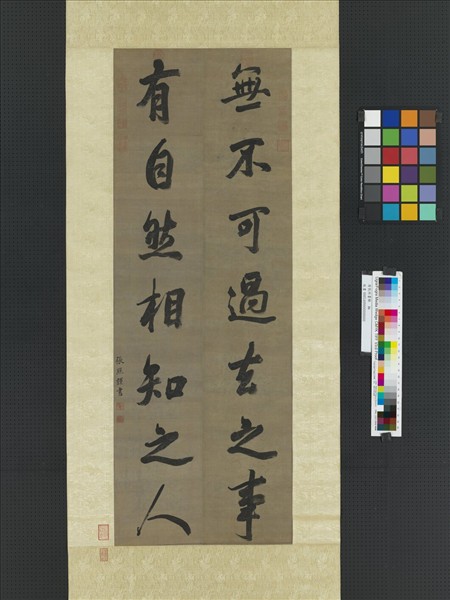 無不可過去之事
有自然相知之人
張瑞圖書